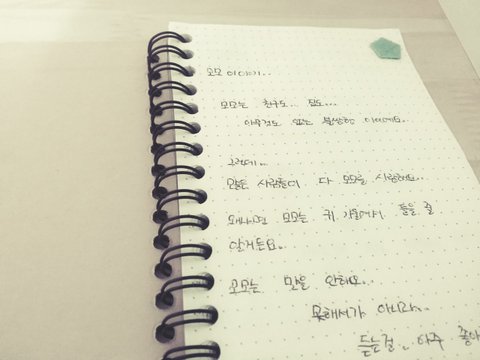 모모 이야기..
모모는 친구도... 집도...
아무것도 없는 불쌍한 아이예요.
그런데..
많은 사람들이 다 모모를 사랑해요..
왜냐면 모모는 귀 기울여서 들을 줄
알거든요.
모모는 말을 안해요..
못해서가 아니라..
듣는걸.. 아주 좋아